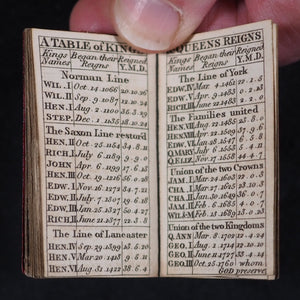 A TABLE of KINGS
Kings Began their Reigned
Names Reigns Y.M.D.
Norman Line
WIL.I Oct. 14 1066 20.10.26
WIL.II Sep. 9 1087 12.10.24
HEN.I Aug. 2 1100 35.3.
STEP. Dec. 1 1135 18.10.24
The Saxon Line restord
HEN.II Oct. 25 1154 34.
RICH.I July 6 1189 9.9.0
JOHN Apr. 6 1199 17.6.13
HEN.III Oct. 19 1216 56.
EDW.I Nov. 16 1272 34.7.21
EDW.II July 7 1307 19.
EDW.III Jan. 25 1327 50.
RICH.II June 21 1377 22.3.8
The Line of Lancaster
HEN.IV Sep. 29 1399 13.
HEN.V Mar. 20 1413 9.
HEN.VI Aug. 31 1422 38.6.4
QUEENS REIGNS
Kings Began their Reigned
Names Reigns Y.M.D.
The Line of York
EDW.IV Mar. 4 1461 22.
EDW.V Apr. 9 1483
RICH.III June 22 1483
The Families united
HEN.VII Aug. 22 1485 23.8.
HEN.VIII Apr. 22 1509 37.
EDW.VI Jan. 28 1547
Q.MARY July 6 1553 5.4.
Q.ELIZ. Nov. 17 1558 44.4.
Union of the two Crowns
JAM.I Mar. 24 1603 22.
CHA.I Mar. 27 1625 23.10.3
CHA.II Jan. 30 1649 36.
JAM.II Feb. 6 1685
WIL&M Feb. 13 1689 13.
Union of the two Kingdoms
Q.ANN Mar. 8 1702 12.
GEO.I Aug. 1 1714 12.10.
GEO.II June 11 1727 33.4.
GEO.III Oct. 25 1760 whom
GOD preserve